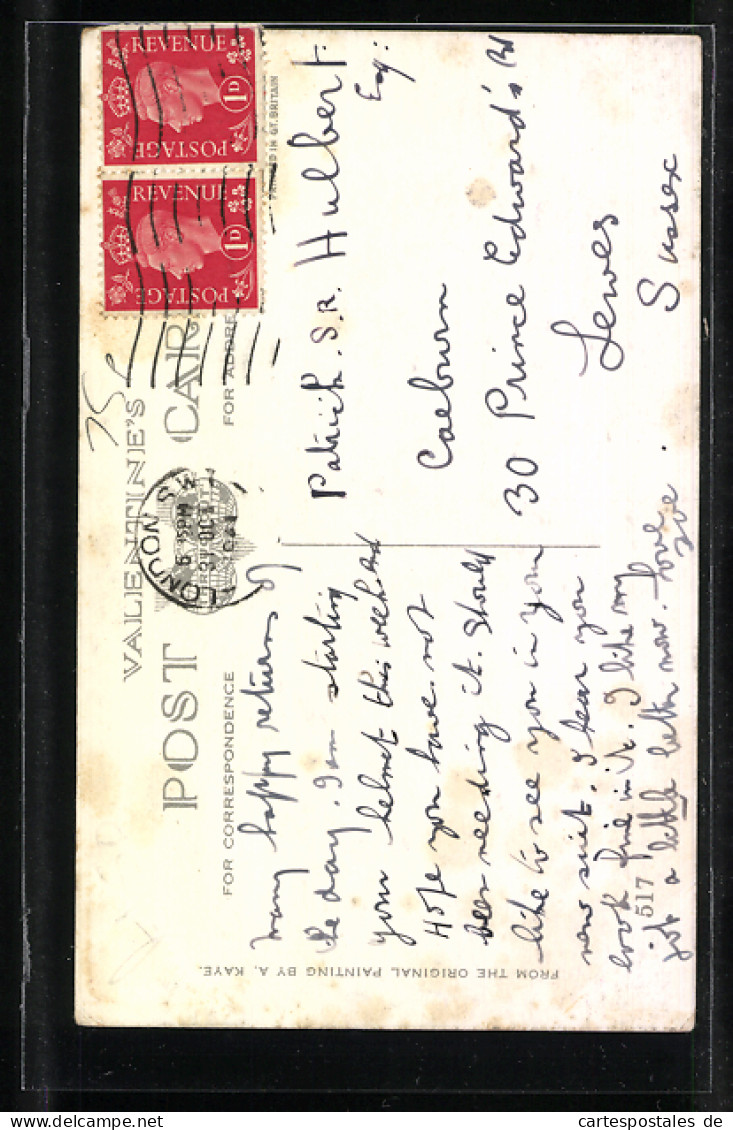 VALENTINE'S
POST CARD
FOR CORRESPONDENCE
FOR ADDRE
REVENUE
1D
POSTAGE
REVENUE
1D
POSTAGE
PRINTED IN GT. BRITAIN
LONDON S.W.
6 PM
31 OCT
many happy returns of
the day. I am starting
your helmet this week-end
Hope you have not
been needing it. Should
like to see you in your
new suit. I hear you
look fine in it. I like my
job a little better now. Love
Zoe.
Patrick. S. R. Hulbert.
Esq:
Caeburn
30 Prince Edward's Rd
Lewes
Sussex
517
FROM THE ORIGINAL PAINTING BY A. KAYE.
cartespostales de